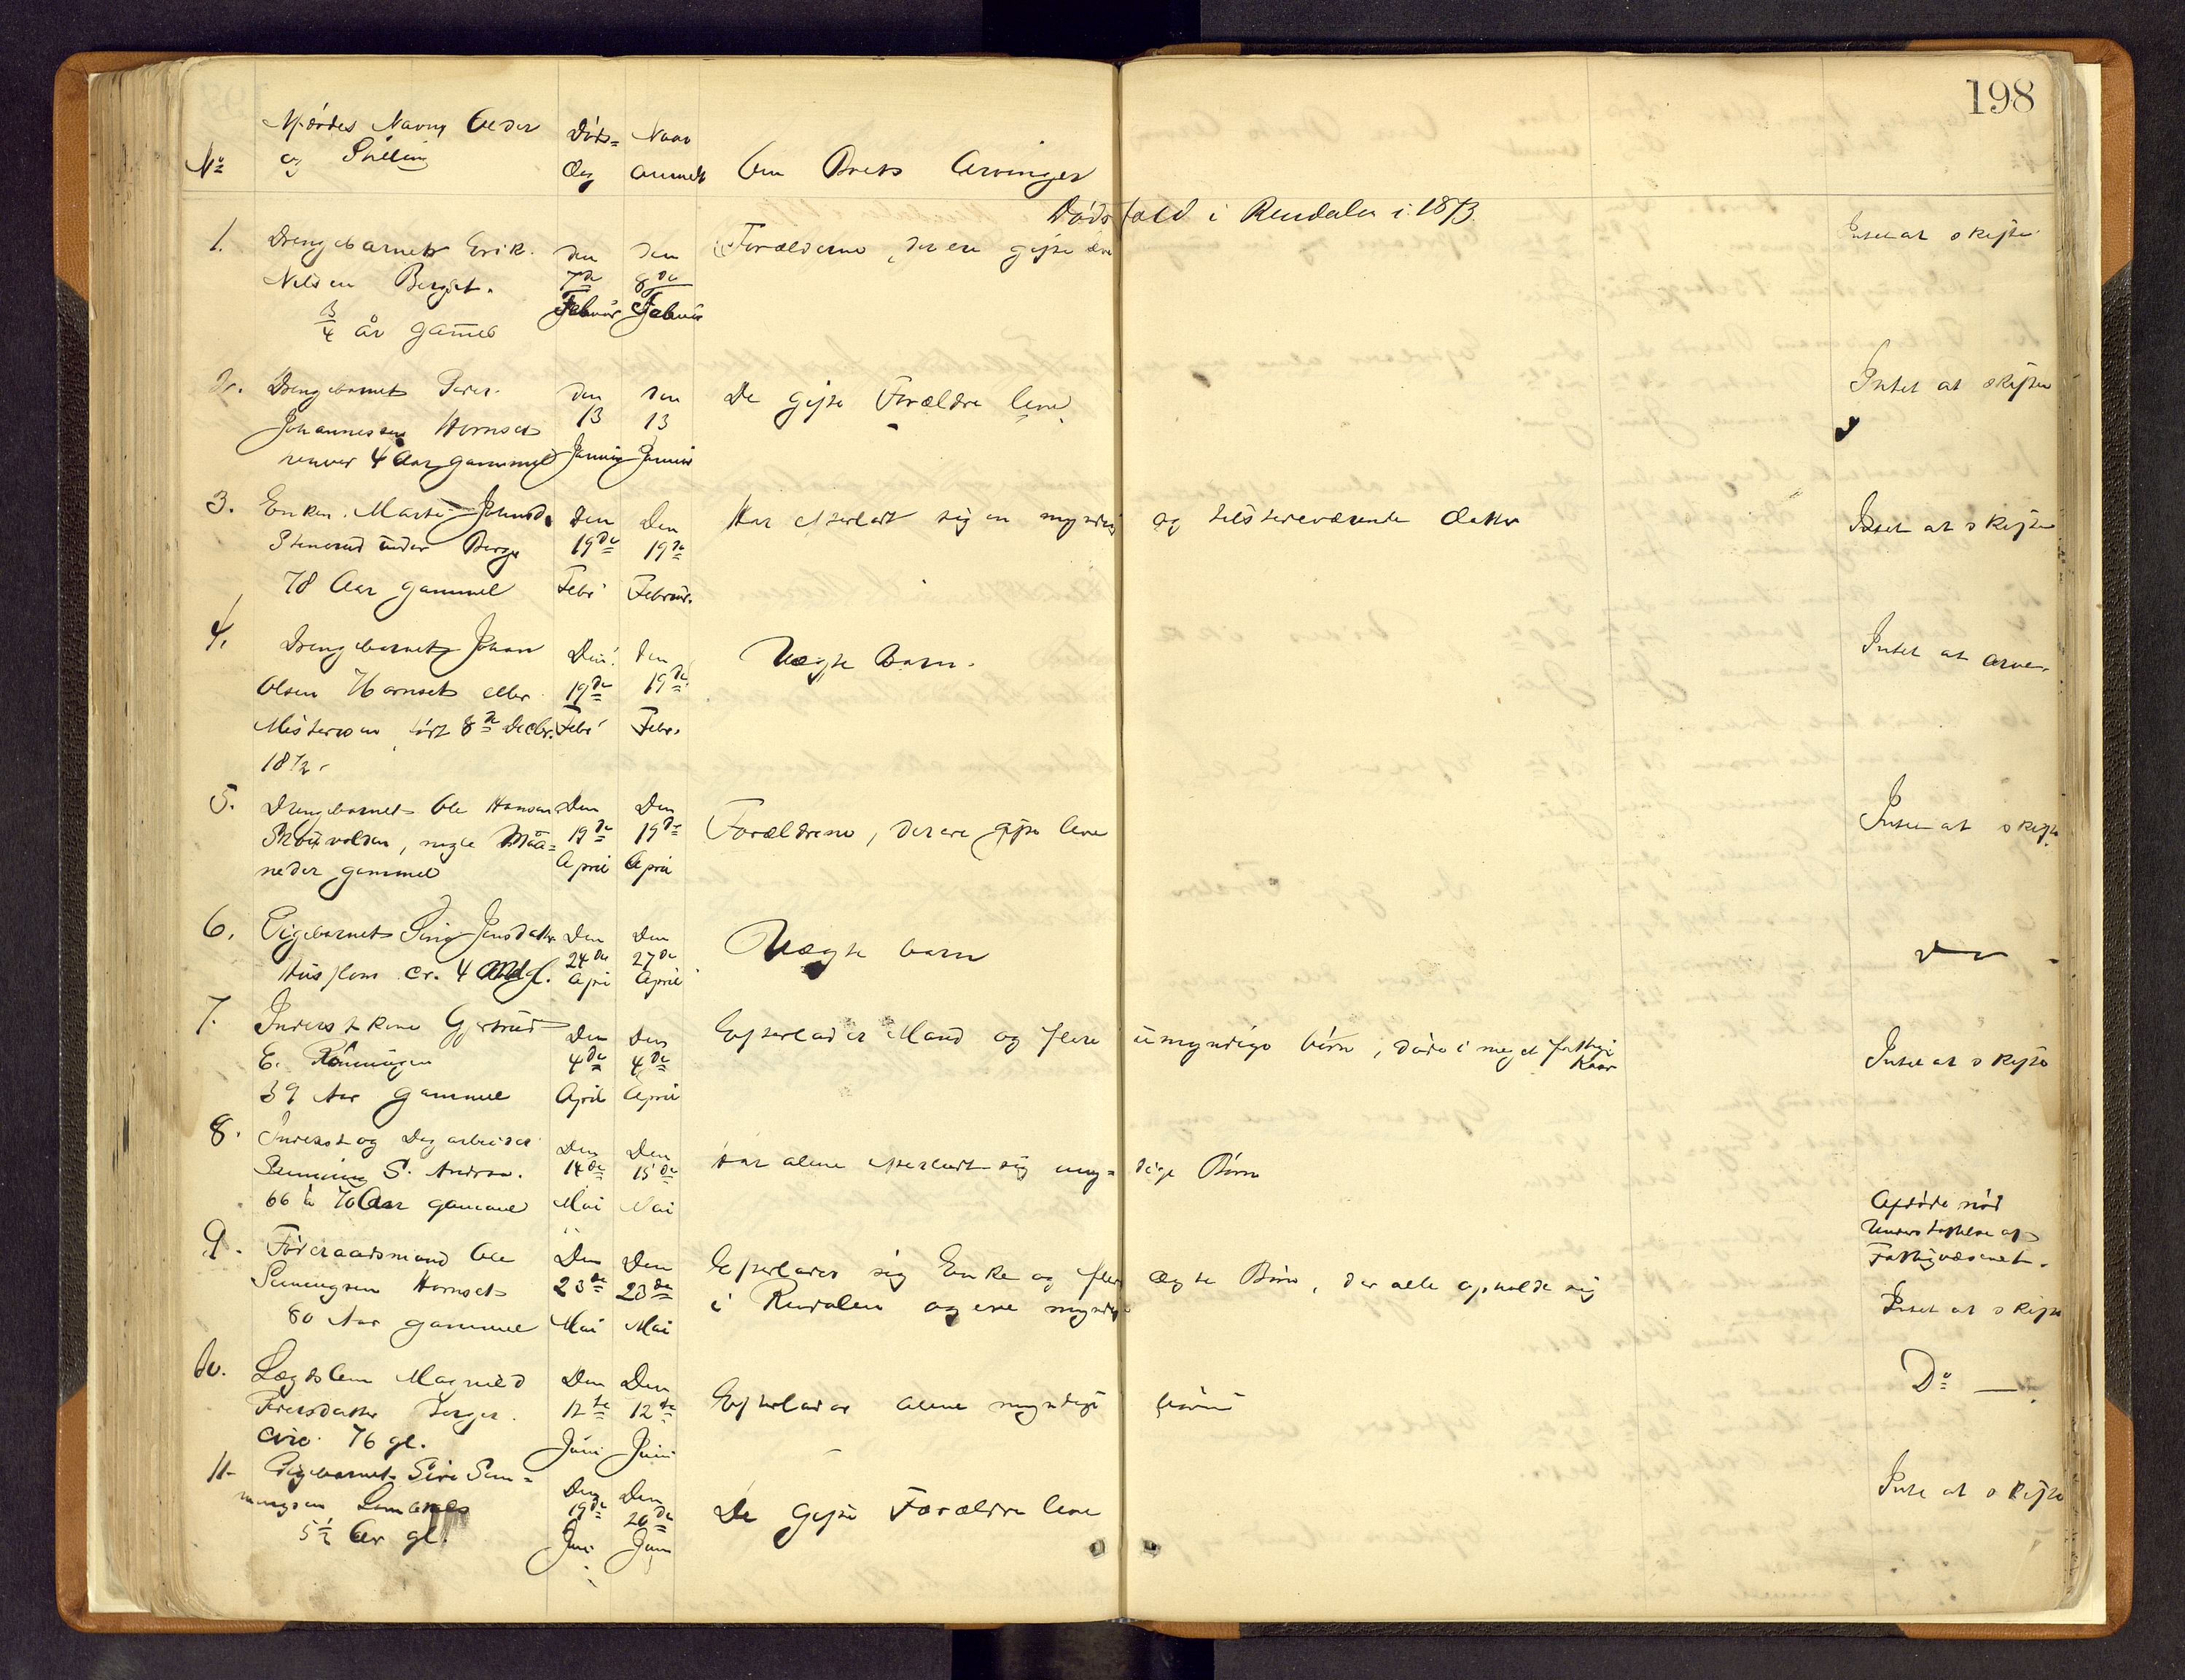 198
No
Afdødes Navn, Alder
og Stilling
Døds-
dag
Naar
anmeldt
Om Boets Arvinger
Dødsfald i Rendalen i 1873.
1. Drengebarnet Erik
Nilsen Berget.
3/4 år gamel
den
7de
Februar
den
8de
Februar
Forælderne, der ere gifte leve
Intet at skifte
2. Drengebarnet Peder
Johannessen Hornset
henved 4 Aar gammel
den
13
Januar
den
13
Januar
De gifte Forældre leve.
Intet at skifte
3. Enken Marte Johnsd.
Stenerud under Berge
78 Aar gammel
den
19de
Febr
Den
19de
Februar.
Har efterladt sig en myndig og tilstedeværende Datter
Intet at skifte
4. Drengebarnet Johan
Olsen Hornset eller
født 8de Decbr.
1872.
Den
19de
Febr
den
19de
Febr.
Uægte Barn.
Intet at arve.
5. Drengebarnet Ole Hansen
nogle Maa-
neder gammel
Den
19de
April
Den
19de
April
Forældrene, der ere gifte leve
Intet at skifte
6. Pigebarnet Jensdatter
cr. 4 Md gl.
Den
24de
Apri
Den
27de
April
Uægte barn
Do
7. Inderstkone Gjertrud
E. Rønningen
39 Aar gammel
Den
4de
April
Den
4de
April
Efterlader Mand og flere umyndige børn, døde i meget fattige
Kaar
Intet at skifte
8. Inderst og Dagarbeider
Semming S. Andraa.
66 à 70 Aar gammel
Den
14de
Mai
Den
15de
Mai
Har alene efterladt sig myn-dige Børn
Afdøde nød
Understøttelse af
Fattigvæsenet.
9. Føderaadsmand Ole
Semingsen Hornset
80 Aar gammel
Den
23de
Mai
Den
23de
Mai
Efterlader sig Enke og flere ægte Børn, der alle opholde sig
i Rendalen og ere myndige
Intet at skifte
10. Lægdslem Magnild
Pedersdatter Berger.
circ. 76 gl.
Den
12te
Juni
Den
12te
Juni
Efterlader alene myndige børn
Do —
11. Pigebarnet Siri Sem-
mingsen Lomnes
5½ Ar gl.
Den
19de
Juni
Den
20de
Juni
De gifte Forældre leve
Intet at skifte